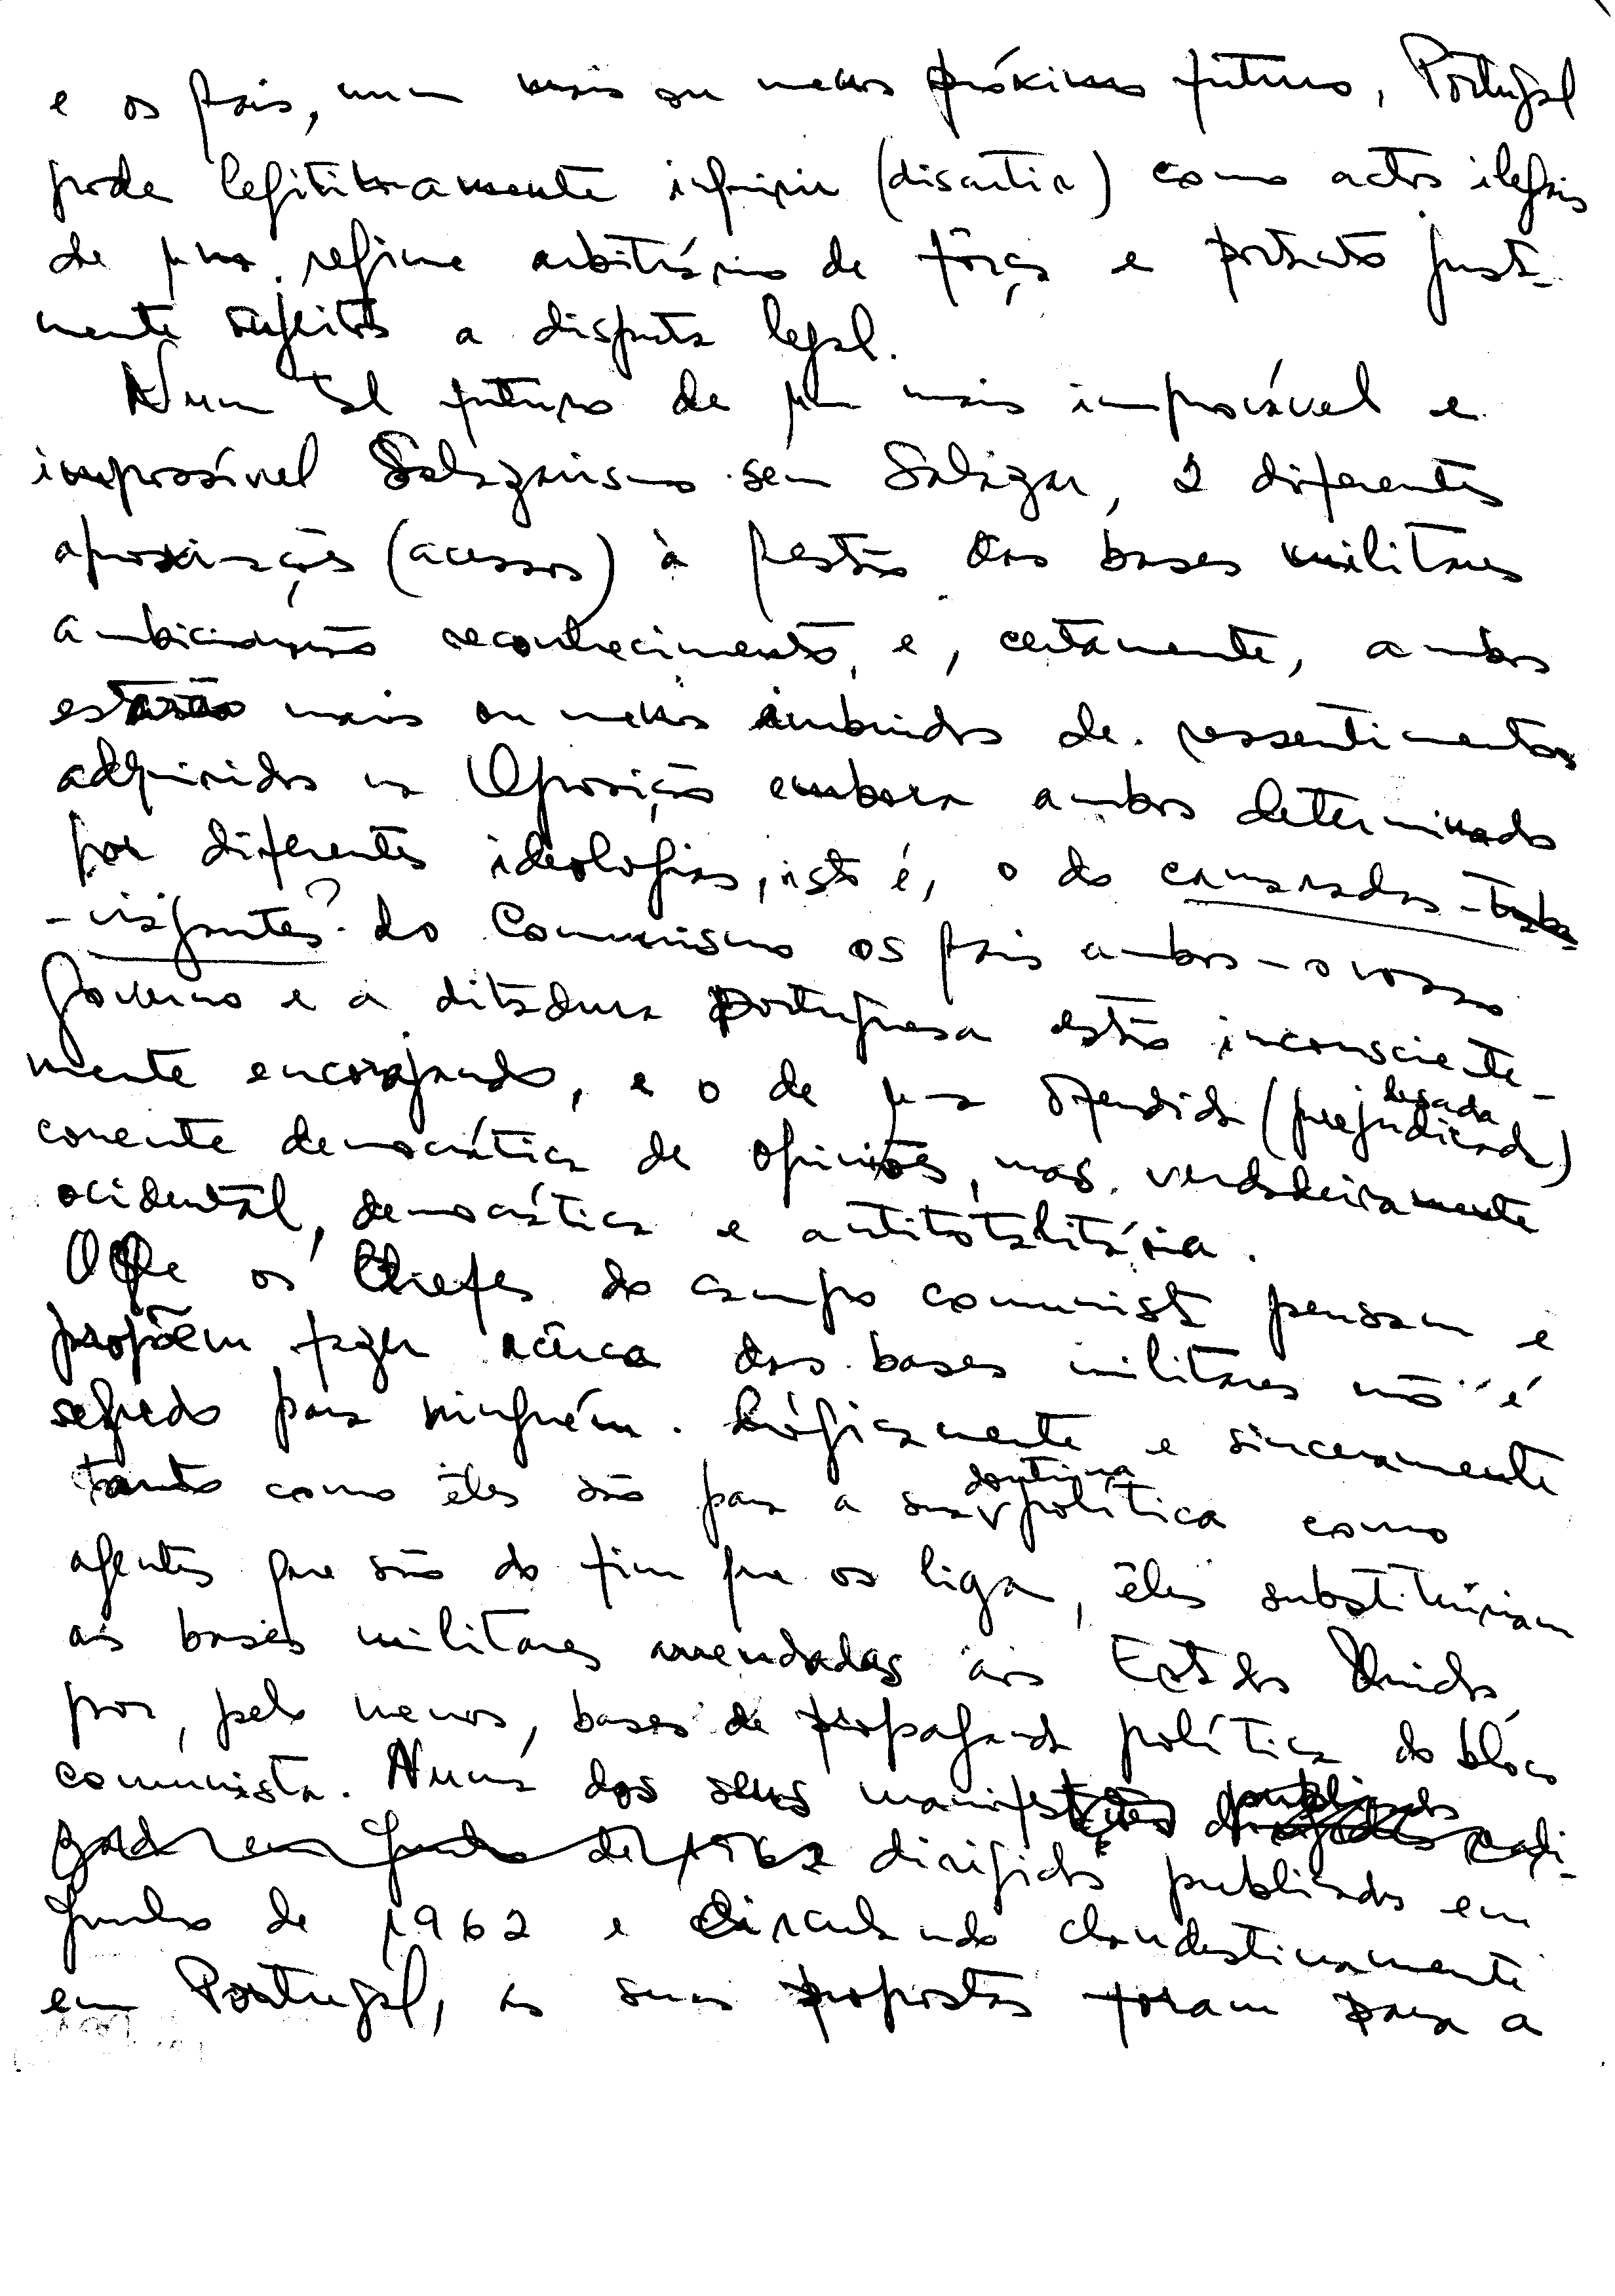 e os quais, num mais ou menos próximo futuro, Portugal
pode legitimamente infringir (discutir) como actos ilegais
de um regime arbitrário de fôrça e portanto justa-
mente sujeitos a disputa legal.
Num tal futuro de um mais improvável e
impossível Salazarismo sem Salazar, 2 diferentes
aproximações (acessos) à questão das bases militares
ambicionarão reconhecimento, e, certamente, ambos
estarão mais ou menos imbuidos de ressentimentos
adquiridos na Oposição embora ambos determinado
por diferentes ideologias, isto é, o do camaradas-
-viajantes? do Comunismo os quais ambos - o vosso
Governo e a ditadura portuguesa estão inconsciente-
mente encorajando, e o de uma ofendida (prejudicada) lesada
corrente democrática de opiniões, mas verdadeiramente
ocidental, democrática e antitotalitária.
O que os Chefes do campo comunista pensam e
propõem fazer acêrca das bases militares não é
segredo para ninguém. Lógicamente e sinceramente
tanto como êles são para a sua doutrina política como
agentes que são do fim que os liga, êles substituiriam
as bases militares arrendadas aos Estados Unidos
por, pelo menos, bases de propaganda política do bloco
comunista. Num dos seus manifestos
dirigidos publicados em
Junho de 1962 e circulando clandestinamente
em Portugal, as suas propostas foram para a